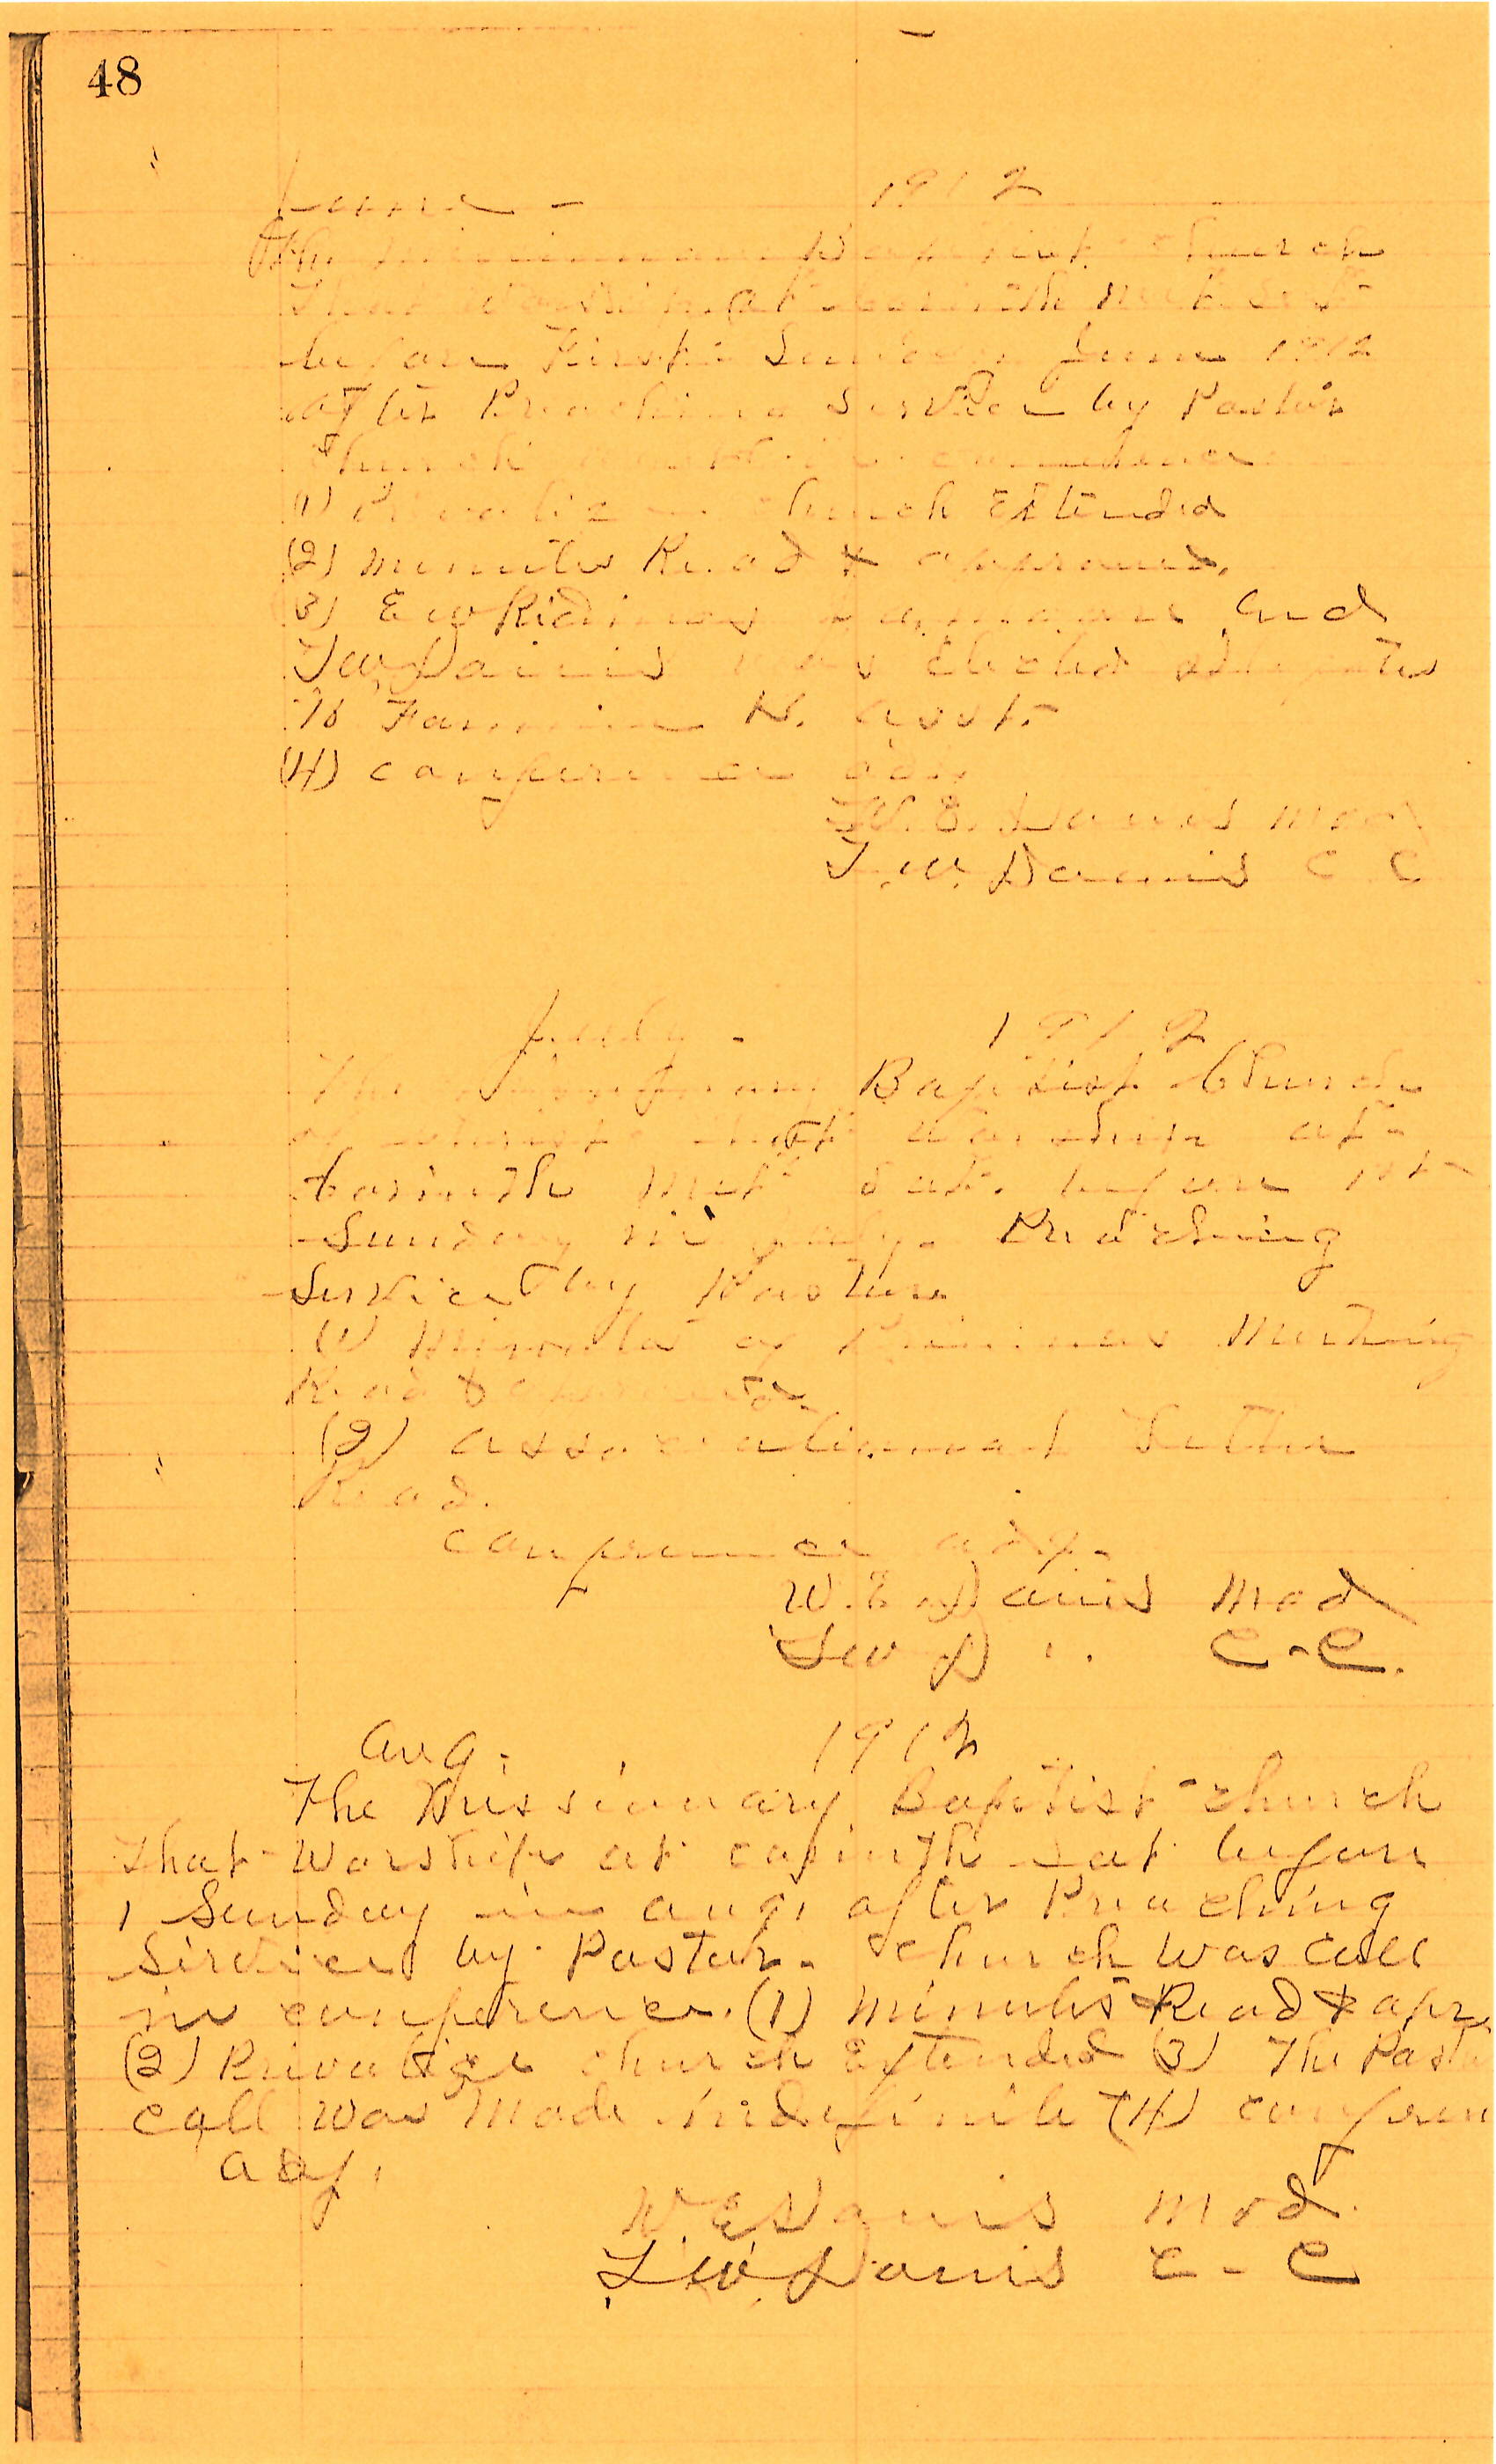 48
June - 1912
The Missionary Baptist church
That Worship at Corinth met Sat
before First Sunday June 1912
after Preaching Service by Pastor
Church
(1) Privalige church Extended
(2) minutes Read & approved.
(3) E W Ridings and
T W Davis was Elected delegates
To Fannin Asst.
(4) conference adj.
W. E. Davis Mod
T. W. Davis C C
July - 1912
The Missionary Baptist Church
that worship at
Corinth Met Sat. before 1st
Sunday in July. Preaching
Service by Pastor
(1) Minutes of Previous Meeting
Read & approved.
(2) associational Letter
Read.
conference adj.
W. E. Davis Mod
T W D C-C.
Aug. 1912
The Missionary Baptist church
That Worship at corinth Sat before
1 Sunday in aug. after Preaching
Service by Pastor. church was call
in conference. (1) Minutes Read & apr.
(2) Privalige church Extended (3) The Past
call was Made indefinite (4) conferen
adj.
W. E. Davis Mod.
T. W. Davis C-C